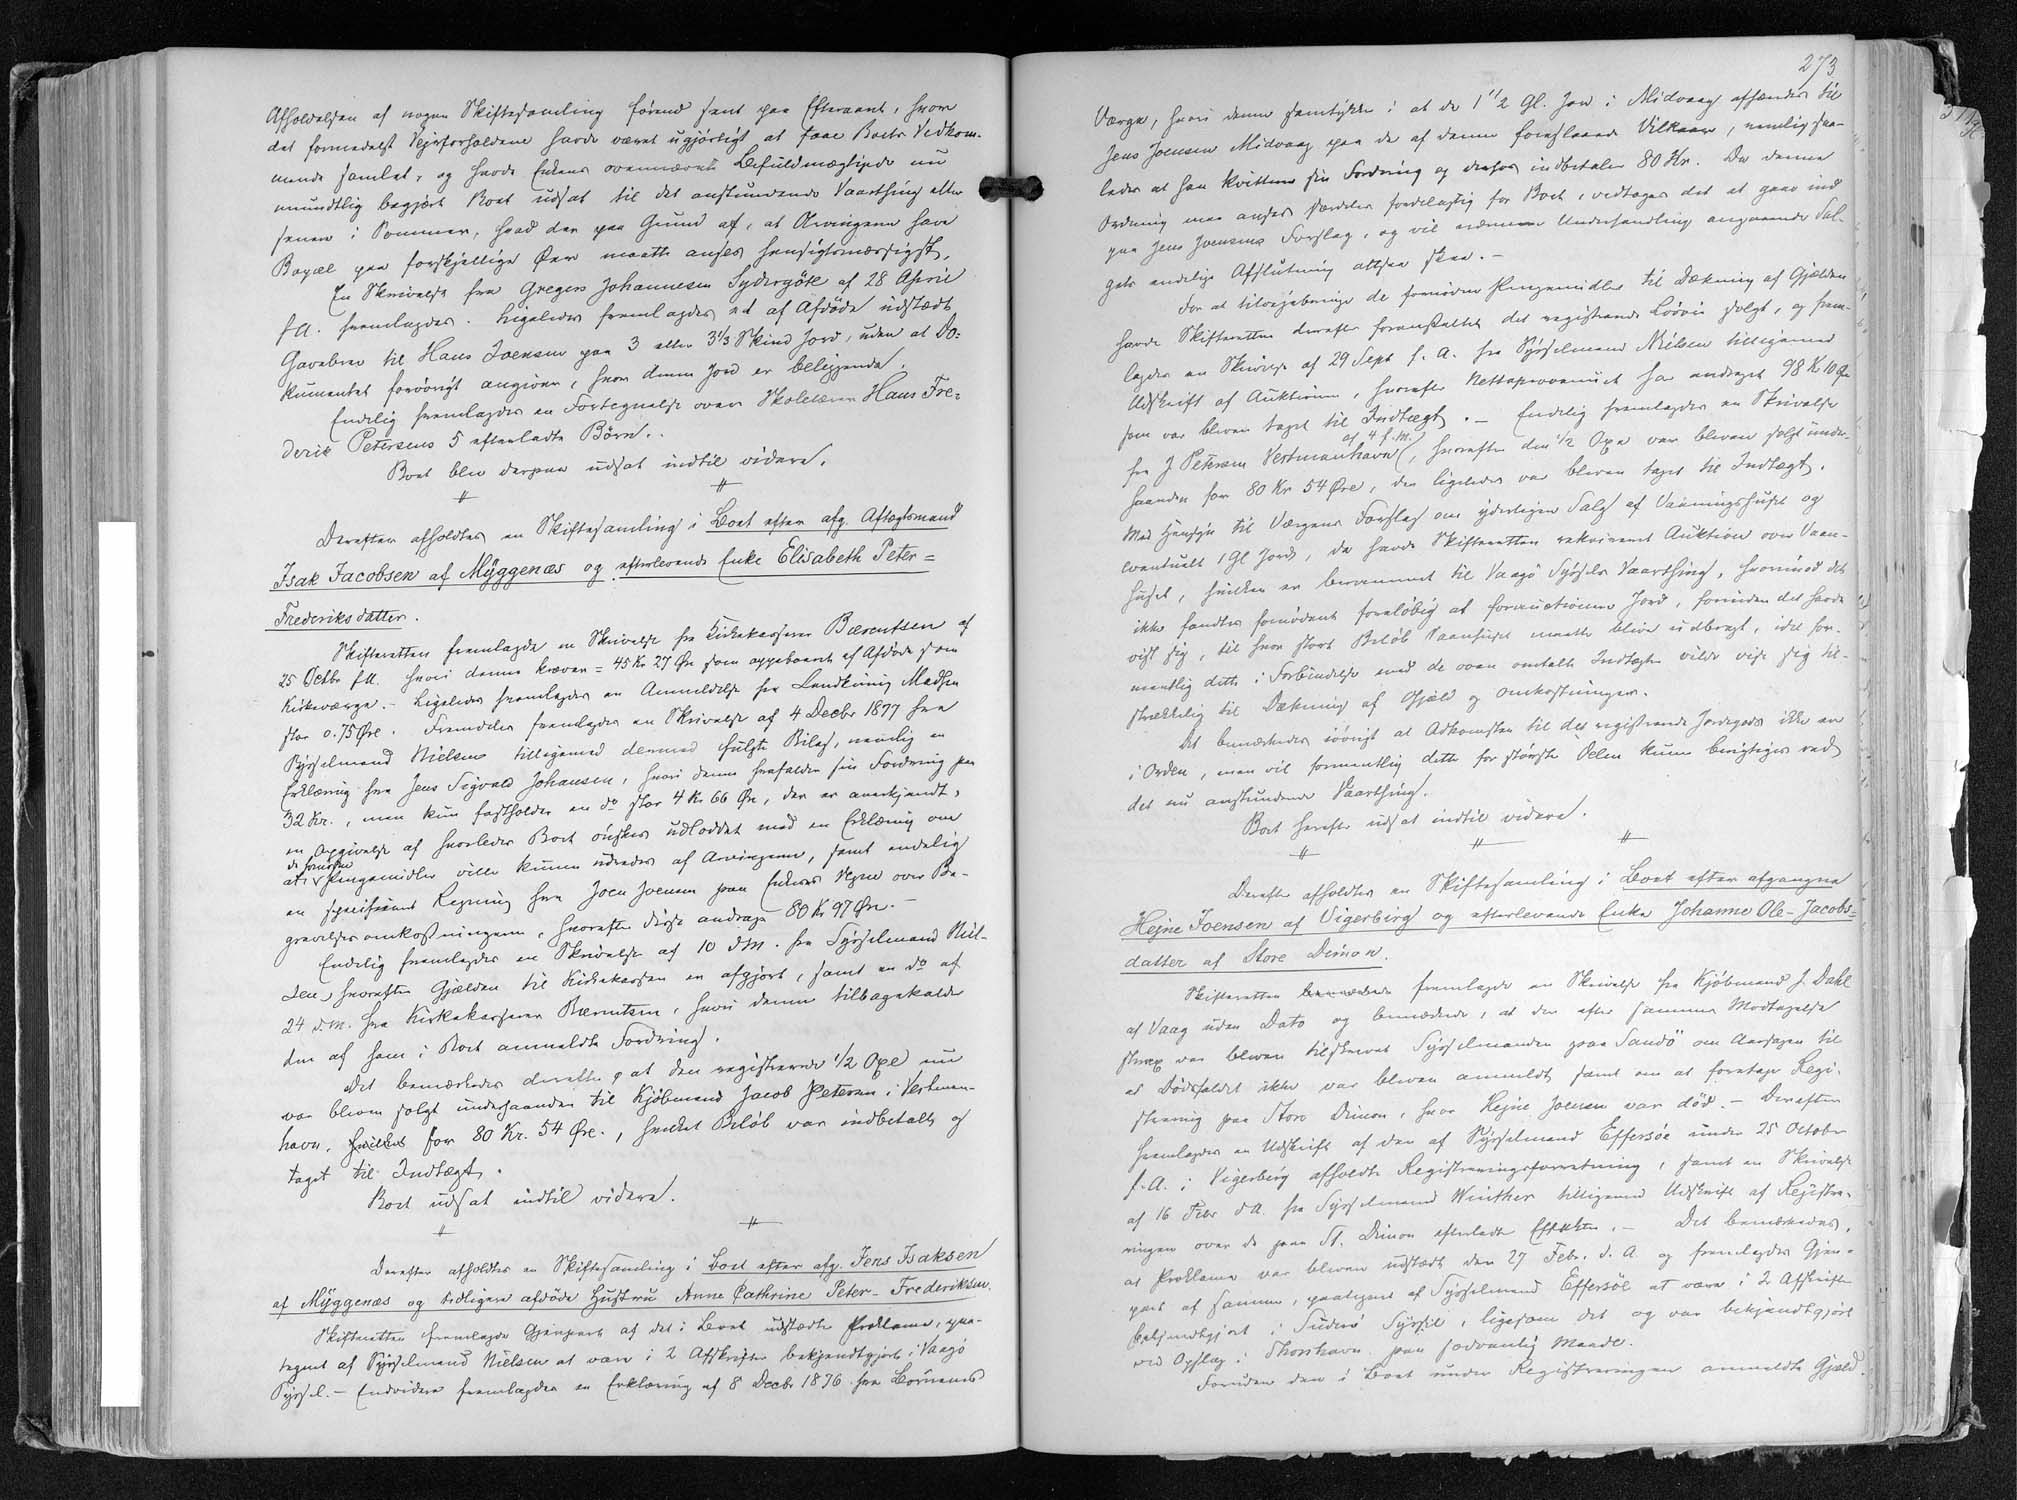 Afholdelsen af nogen Skiftesamling førend sent paa Efteraaret, hvor
det formedelst Vejrforholdene havde været ugjørligt at faae Boets Vedkom-
mende samlet, og havde Enkens ovennævnte Befuldmægtigede nu
mundtlig begjært Boet udsat til det anstundende Vaarthing eller
senere i Sommer, hvad der paa Grund af, at Arvingerne have
Bopæl paa forskjellige Øer maatte anses hensigtsmæssigst.
En Skrivelse fra Gregers Johannesen Sydergöte af 28 April
f.A. fremlagdes. Ligeledes fremlagdes et af Afdøde udstædt
Gavebrev til Hans Joensen paa 3 eller 3 1/3 Skind Jord, uden at Do-
kumentet forövrigt angiver, hvor denne Jord er beliggende.
Endelig fremlagdes en Fortegnelse over Skolelærer Hans Fre-
derik Petersens 5 efterladte Børn.
Boet blev derpaa udsat indtil videre.
Derefter afholdtes en Skiftesamling i Boet efter afg. Aftægtsmand
Isak Jacobsen af Myggenæs og efterlevende Enke Elisabeth Peter-
Frederiksdatter.
Skifteretten fremlagde en Skrivelse fra Kirkekasserer Bærentsen af
25 Octbr f.A. hvori denne kræver = 45 Kr 27 Øre som oppebaaret af Afdøde som
Kirkeværge. - Ligeledes fremlagdes en Anmeldelse fra Landkirurg Madsen
stor 0.75 Øre. Fremdeles fremlagdes en Skrivelse af 4 Decbr 1877 fra
Sysselmand Nielsen tilligemed dermed fulgte Bilag, nemlig en
Erklæring fra Jens Sigvald Johansen, hvori denne frafalder sin Fordring paa
32 Kr., men kun fastholder en do stor 4 Kr 66 Øre, der er anerkjendt,
en Opgivelse af hvorledes Boet ønskes udloddet med en Erklæring om
de fornødne
at Pengemidler ville kunne udredes af Arvingerne, samt endelig
en specificeret Regning fra Joen Joensen paa Enkens Vegne over Be-
gravelsesomkostningerne, hvorefter disse androge 80 Kr 97 Øre. -
Endelig fremlagdes en Skrivelse af 10 d.M. fra Sysselmand Niel-
sen, hvorefter Gjælden til Kirkekassen er afgjort, samt en do af
24 d.M. fra Kirkekasserer Bærentsen, hvori denne tilbagekalder
den af ham i Boet anmeldte Fordring.
Det bemærkedes derefter at den registrerede 1/2 Oxe nu
var bleven solgt underhaanden til Kjöbmand Jacob Petersen i Vestman-
havn, hvilket for 80 Kr. 54 Øre., hvilket Beløb var indbetalt og
taget til Indtægt.
Boet udsat indtil videre.
Derefter afholdtes en Skiftesamling i Boet efter afg. Jens Isaksen
af Myggenæs og tidligere afdøde Hustru Anne Cathrine Peter-Frederiksen.
Skifteretten fremlagde Gjenpart af det i Boet udstædte Proklama, paa-
tegnet af Sysselmand Nielsen at være i 2 Afskrifter bekjendtgjort i Vaagö
Syssel. - Endvidere fremlagdes en Erklæring af 8 Decbr 1876 fra Børnenes
273
Værge, hvori denne samtykker i at de 1 1/2 Gl. Jord i Midvaag afhændes til
Jens Joensen Midvaag paa de af denne foreslaaede Vilkaar, nemlig saa-
ledes at han kvitterer sin Fordring og derhos indbetaler 80 Kr. Da denne
Ordning maa anses særdeles fordelagtig for Boet, vedtoges det at gaae ind
paa Jens Joensens Forslag, og vil nærmere Underhandling angaaende Sal-
gets endelige Afslutning altsaa skee. -
For at tilvejebringe de fornødne Pengemidler til Dækning af Gjælden
havde Skifteretten derefter foranstaltet det registrerede Løsøre solgt, og frem-
lagdes en Skrivelse af 29 Sept f.A. fra Sysselmand Nielsen tilligemed
Udskrift af Auktionen, hvorefter Nettoprovenuet har andraget 98 K 10 Øre
som var bleven taget til Indtægt. - Endelig fremlagdes en Skrivelse
af 4 f.M.
fra J Petersen Vestmanhavn, hvorefter den 1/2 Oxe var bleven solgt under-
haanden for 80 Kr 54 Øre, der ligeledes var bleven taget til Indtægt.
Med Hensyn til Værgens Forslag om yderligere Salg af Vaaningshuset og
eventuelt 1 Gl Jord, da havde Skifteretten rekvireret Auktion over Vaan-
huset, hvilken er berammet til Vaagö Syssels Vaarthing, hvorimod det
ikke fandtes fornødent foreløbig at forauctionere Jord, førinden det havde
vist sig, til hvor stort Beløb Vaanhuset maatte blive udbragt, idet for-
mentlig dette i Forbindelse med de oven omtalte Indtægter vilde vise sig til-
strækkelig til Dækning af Gjæld og Omkostninger.
Det bemærkedes iövrigt at Adkomsten til det registrerede Jordegods ikke er
i Orden, men vil formentlig dette for største Delen kunne berigtiges ved
det nu anstundende Vaarthing.
Boet herefter udsat indtil videre.
Derefter afholdtes en Skiftesamling i Boet efter afgangne
Hejne Joensen af Vigerbirg og efterlevende Enke Johanne Ole-Jacobs-
datter af Store Dimon.
Skifteretten bemærkede fremlagde en Skrivelse fra Kjöbmand J. Dahl
af Vaag uden Dato og bemærkede, at der efter sammes Modtagelse
strax var bleven tilskrevet Sysselmanden paa Sandö om Aarsagen til
at Dødsfaldet ikke var bleven anmeldt samt om at foretage Regi-
strering paa Store Dimon, hvor Hejne Joensen var död. - Derefter
fremlagdes en Udskrift af den af Sysselmand Effersöe under 25 October
f.A. i Vigerberg afholdte Registreringsforretning, samt en Skrivelse
af 16 Febr d.A. fra Sysselmand Winther tilligemed Udskrift af Registre-
ringen over de paa St. Dimon efterladte Effekter. - Det bemærkedes,
at Proklama var bleven udstædt den 27 Febr. d.A. og fremlagdes Gjen-
part af samme, paategnet af Sysselmand Effersöe at være i 2 Afskrifter
bekjendtgjort i Suderö Syssel, ligesom det og var bekjendtgjort
ved Opslag i Thorshavn paa sædvanlig Maade.
Foruden den i Boet under Registreringen anmeldte Gjæld